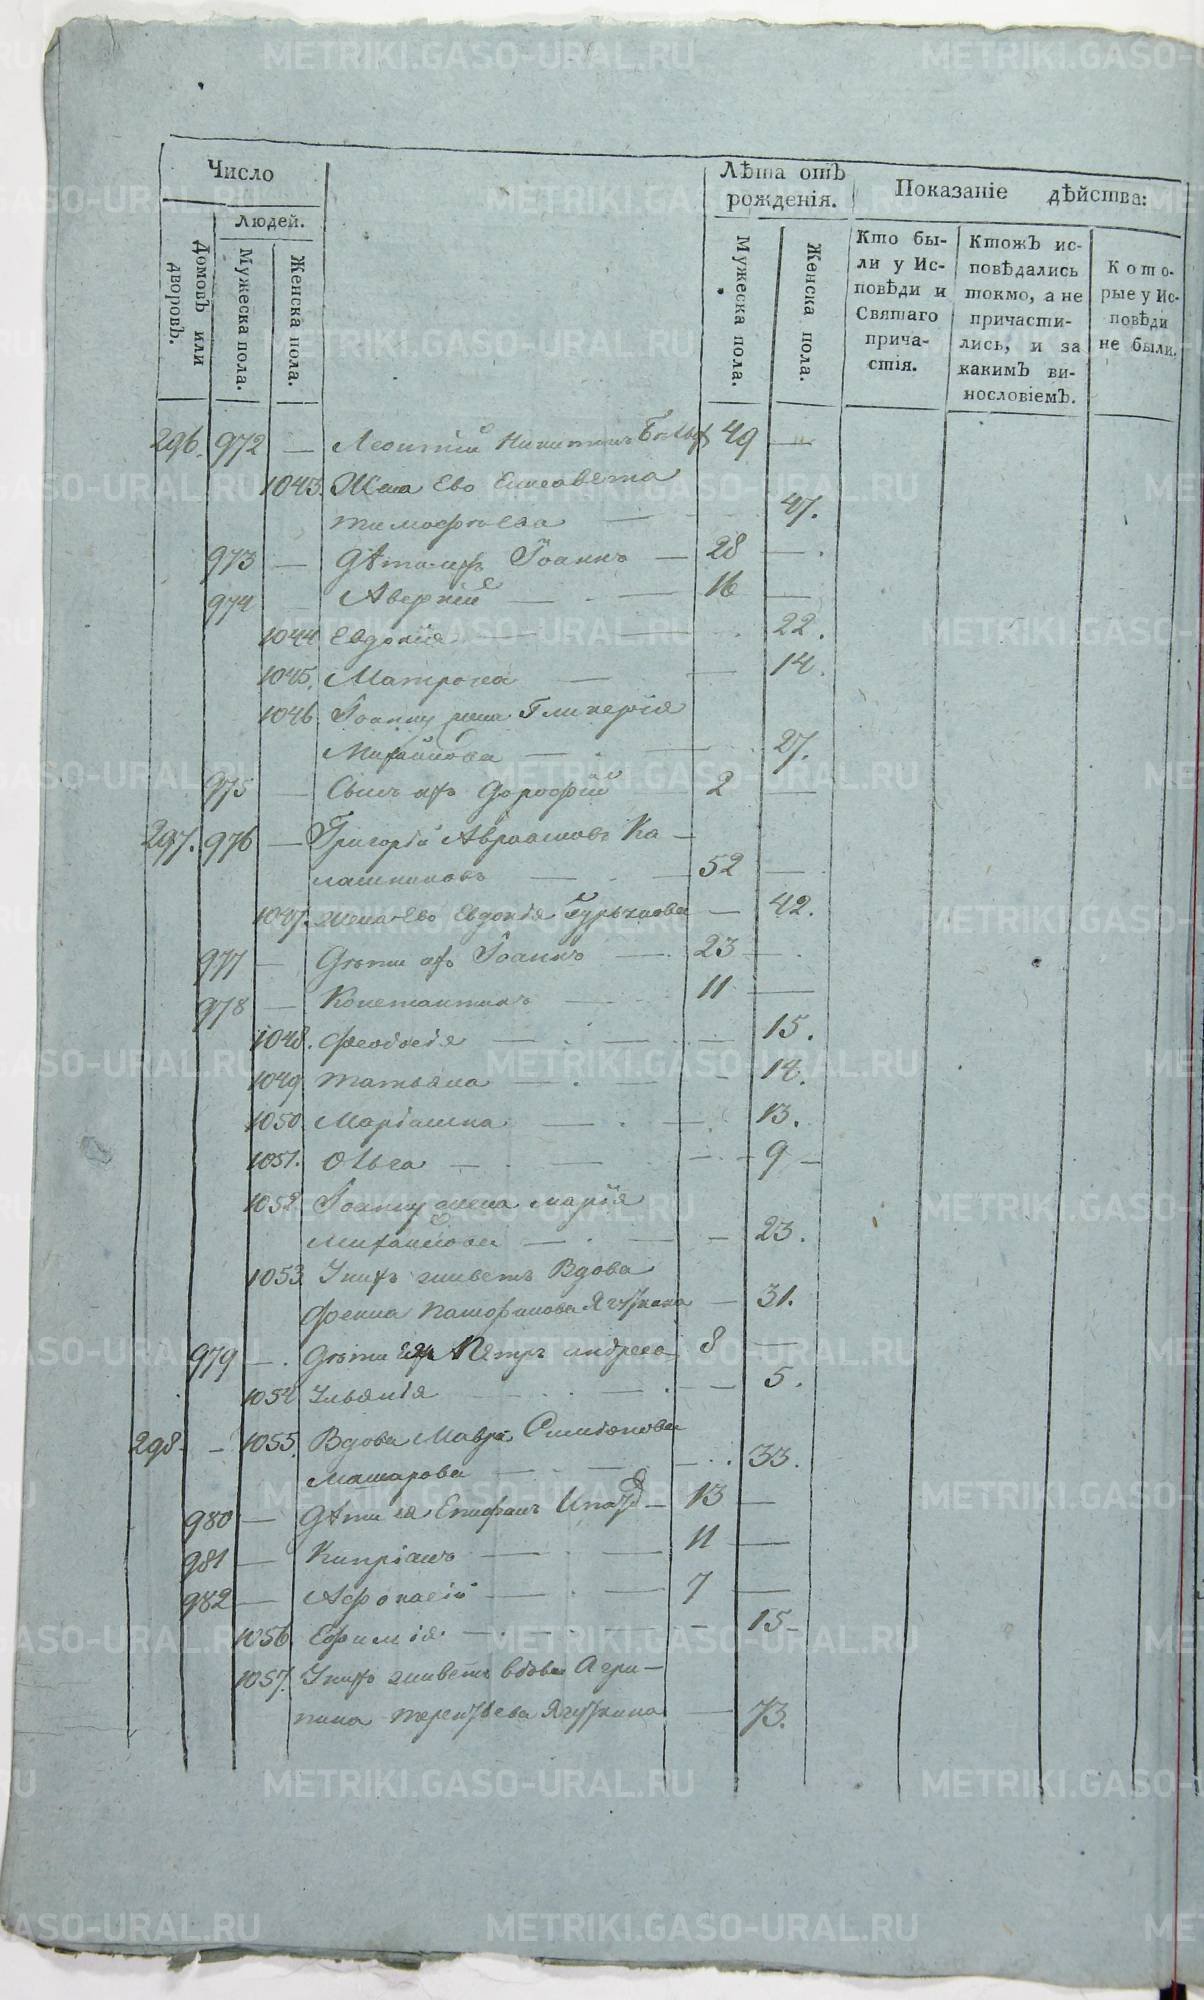 Число
Людей.
Домовъ или дворовъ.
Мужеска пола.
Женска пола.
Лѣта отъ рожденія.
Мужеска пола.
Женска пола.
Показаніе дѣйства:
Кто бы-
ли у Ис-
повѣди и
Святаго
прича-
стія.
Ктожъ ис-
повѣдались
токмо, а не
причасти-
лись, и за
какимъ ви-
нословіемъ.
Кото-
рые у Ис-
повѣди
не были.
296. 972 — Леонтій Никитинъ 49 —
1043. Жена Ево Елисавета
тимофеева — 47.
973 — Дѣти ихъ Іоаннъ — 28 —
974 Аверкій — 16 —
1044 Евдокія — 22.
1045. Матрона — 14.
1046. Іоанну жена Гликерія
Михайлова — 27.
975 — Сынъ ихъ Дорофій — 2 —
297. 976 — Григорій Авраамовъ Ка-
лашниковъ — 52 —
1047. жена Ево Евдокія Гурьянова — 42.
977 — Дѣти ихъ Іоаннъ — 23 —
978 — Константинъ — 11 —
1048. Феодосія — 15.
1049 Татьяна — 14.
1050. Маріамна — 13.
1051. Olьга — 9 —
1052. Іоанну жена марія
Михайлова — 23.
1053. Унихъ живетъ Вдова
Фекла — 31.
979 — Дѣти Ея Пѣтръ андреев — 8 —
1054 Ульянія — 5.
298 — 1055. Вдова Мавра Симеонова
Машарова — 33.
980 — Дѣти ея Епифанъ — 13 —
981 — Кипріанъ — 11 —
982 — Афонасій — 7 —
1056. Ефимія — 15 —
1057. Унихъ живетъ вдова Агри-
пина терентьева — 73.
METRIKI.GASO-URAL.RU